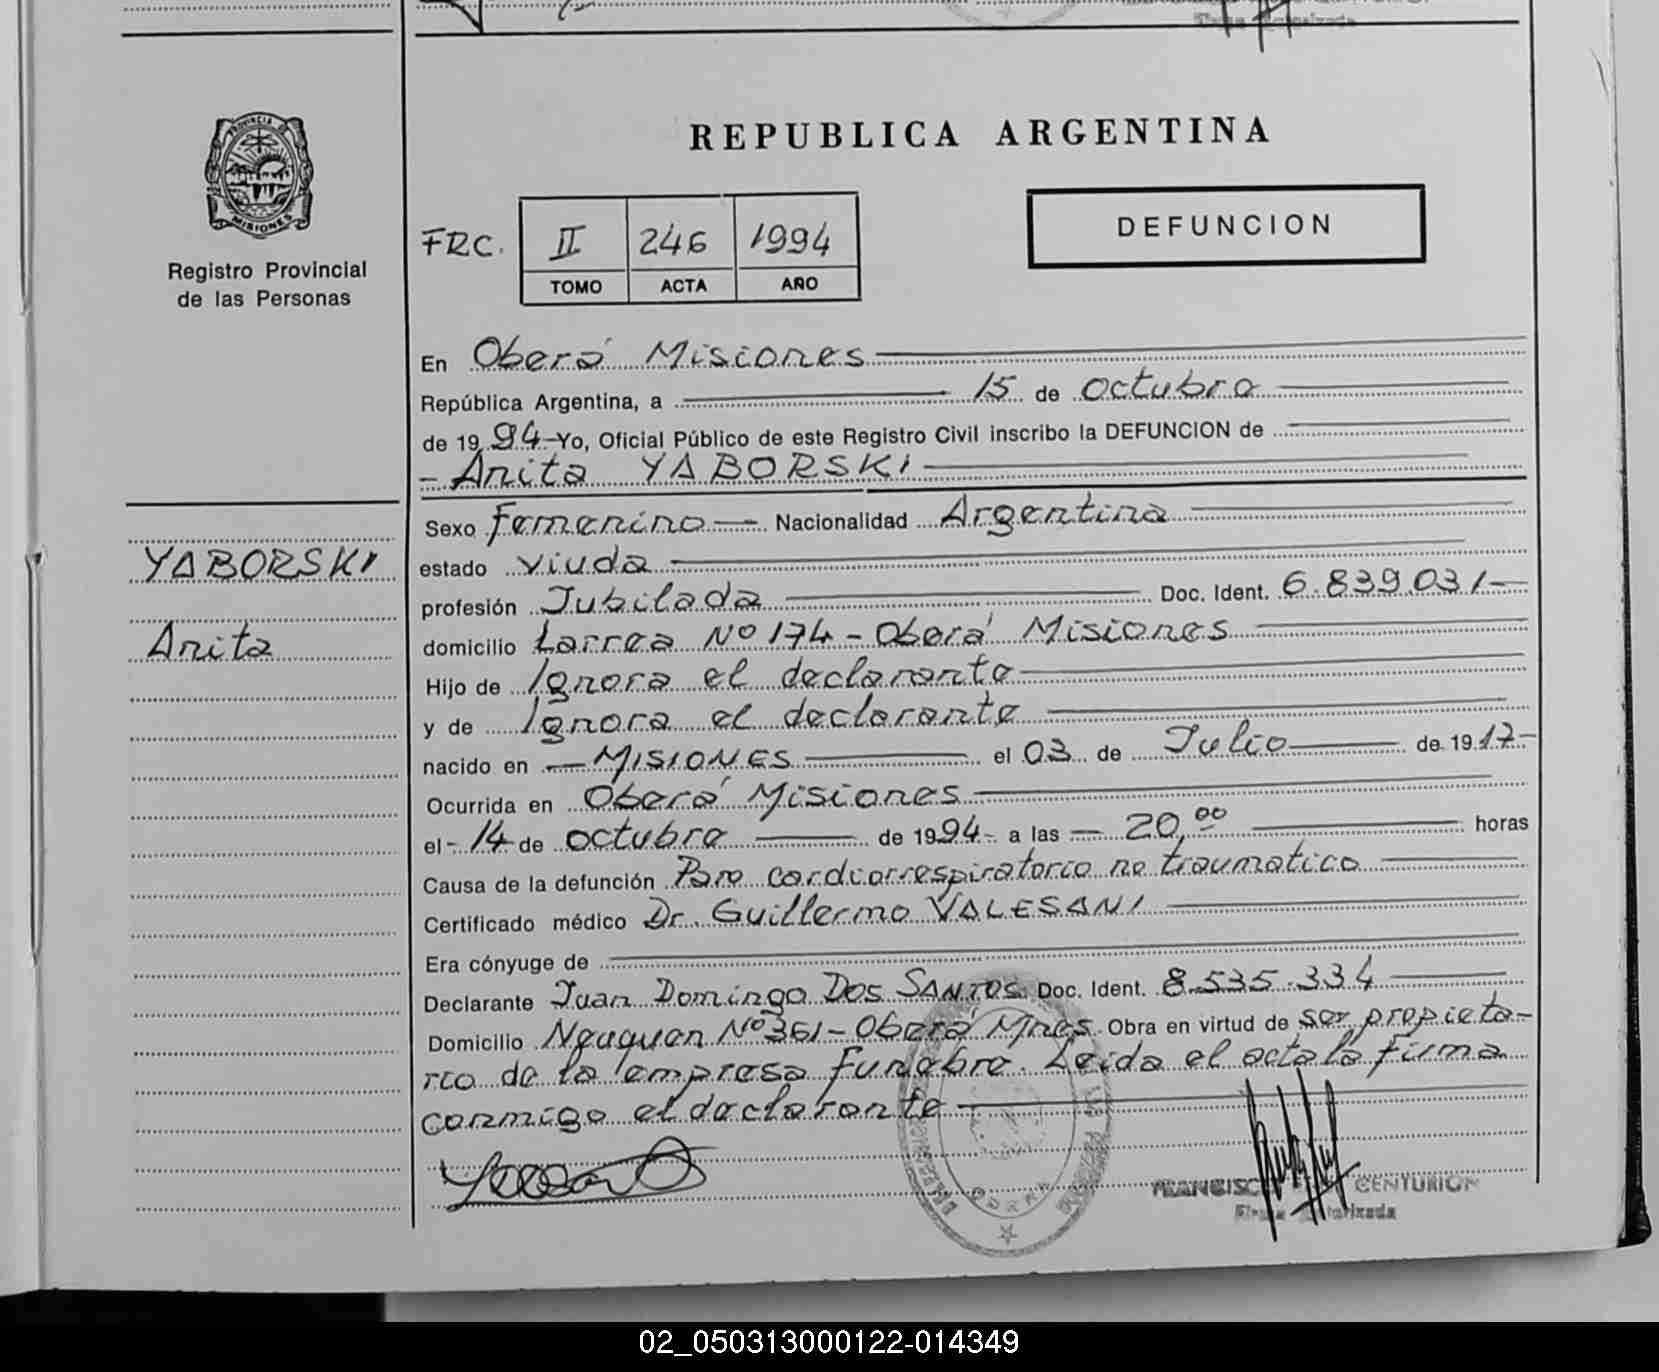 PROVINCIA DE
MISIONES
Registro Provincial
de las Personas
YABORSKI
Anita
REPUBLICA ARGENTINA
FRC. II 246 1994
TOMO ACTA AÑO
DEFUNCION
En Oberá Misiones
República Argentina, a 15 de octubre
de 19 94 Yo, Oficial Público de este Registro Civil inscribo la DEFUNCION de
- Anita YABORSKI
Sexo Femenino Nacionalidad Argentina
estado viuda
profesión Jubilada Doc. Ident. 6.839.031
domicilio Larrea Nº 174 - Oberá Misiones
Hijo de Ignora el declarante
y de Ignora el declarante
nacido en - MISIONES el 03 de Julio de 1917-
Ocurrida en Oberá Misiones
el - 14 de octubre de 1994- a las - 20,00 horas
Causa de la defunción Paro cardiorrespiratorio no traumatico
Certificado médico Dr. Guillermo VALESANI
Era cónyuge de
Declarante Juan Domingo DOS SANTOS Doc. Ident. 8.535.334
Domicilio Neuquen Nº 361 - Oberá Mnes. Obra en virtud de ser propieta-
rio de la empresa Funebre. Leida el acta la Firma
conmigo el declarante
FRANCISCO CENTURION
Firma Autorizada
02_050313000122-014349